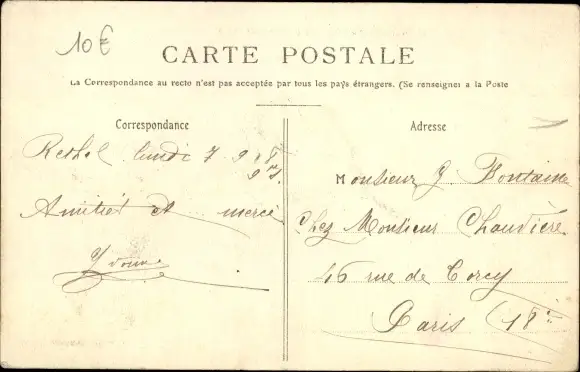 10€
CARTE POSTALE
La Correspondance au recto n'est pas acceptée par tous les pays étrangers. (Se renseigner a la Poste
Correspondance
Adresse
Rethel lundi 7 9
Amitiés et merci
Yvonne
Monsieur G Fontaine
Chez Monsieur Chaudière
46 rue de Torcy
Paris (18e